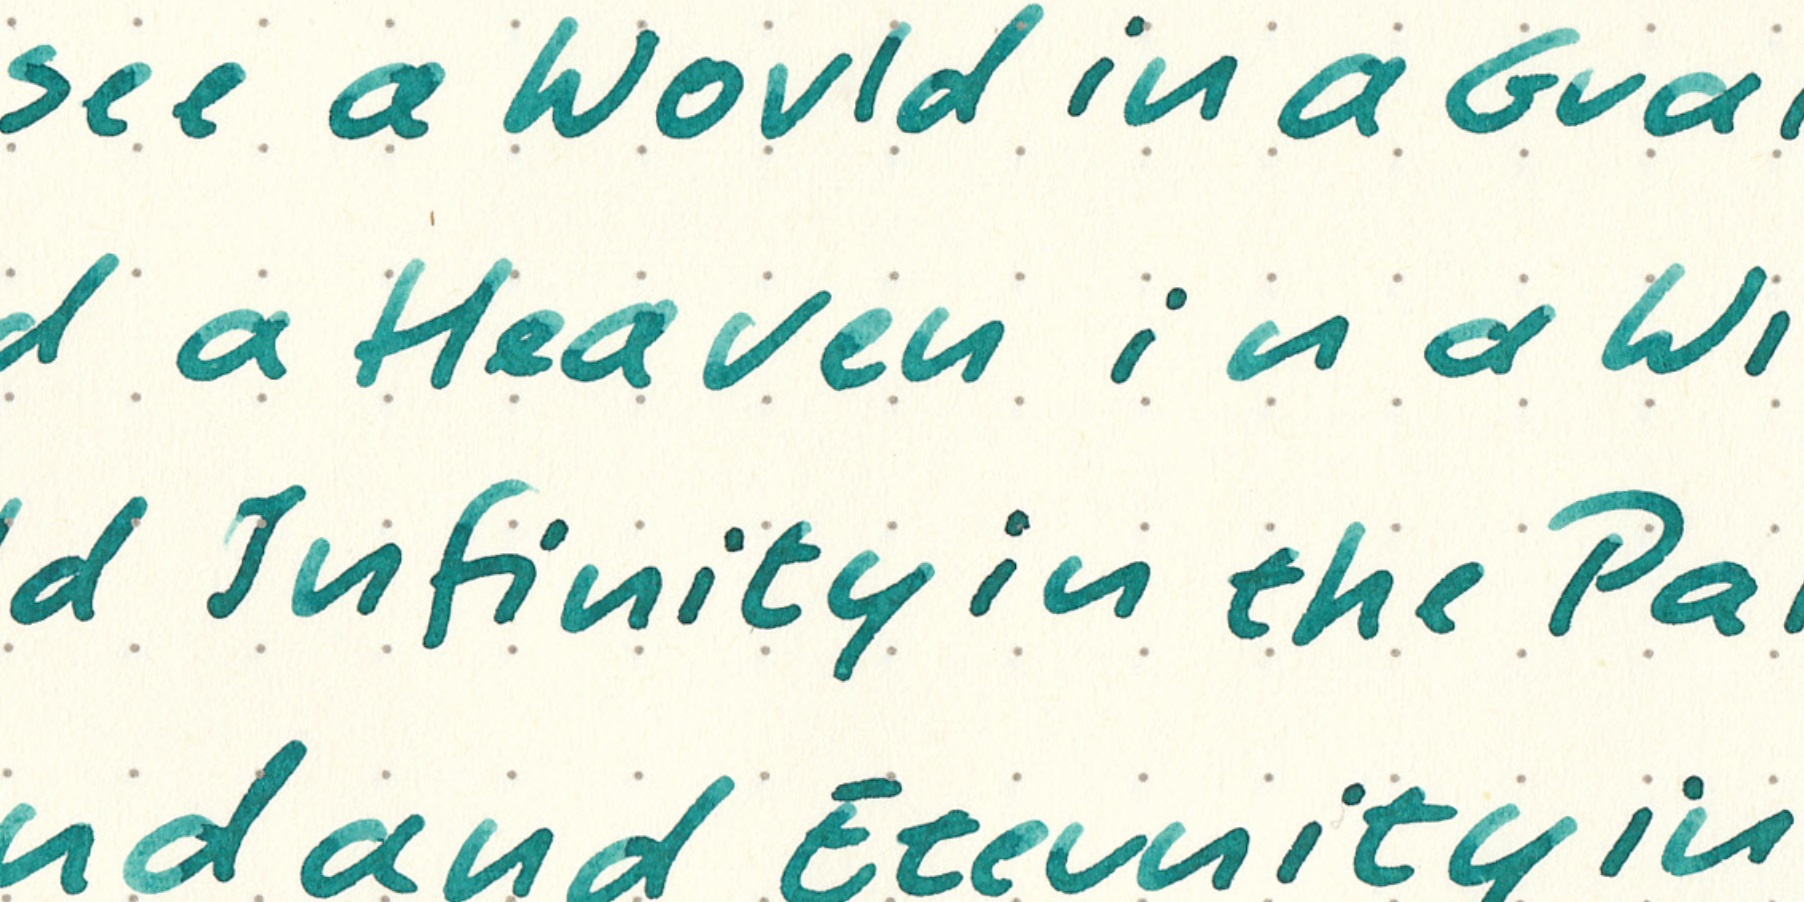 see a World in a Grai
d a Heaven in a Wi
ld Infinity in the Pal
nd and Eternity in